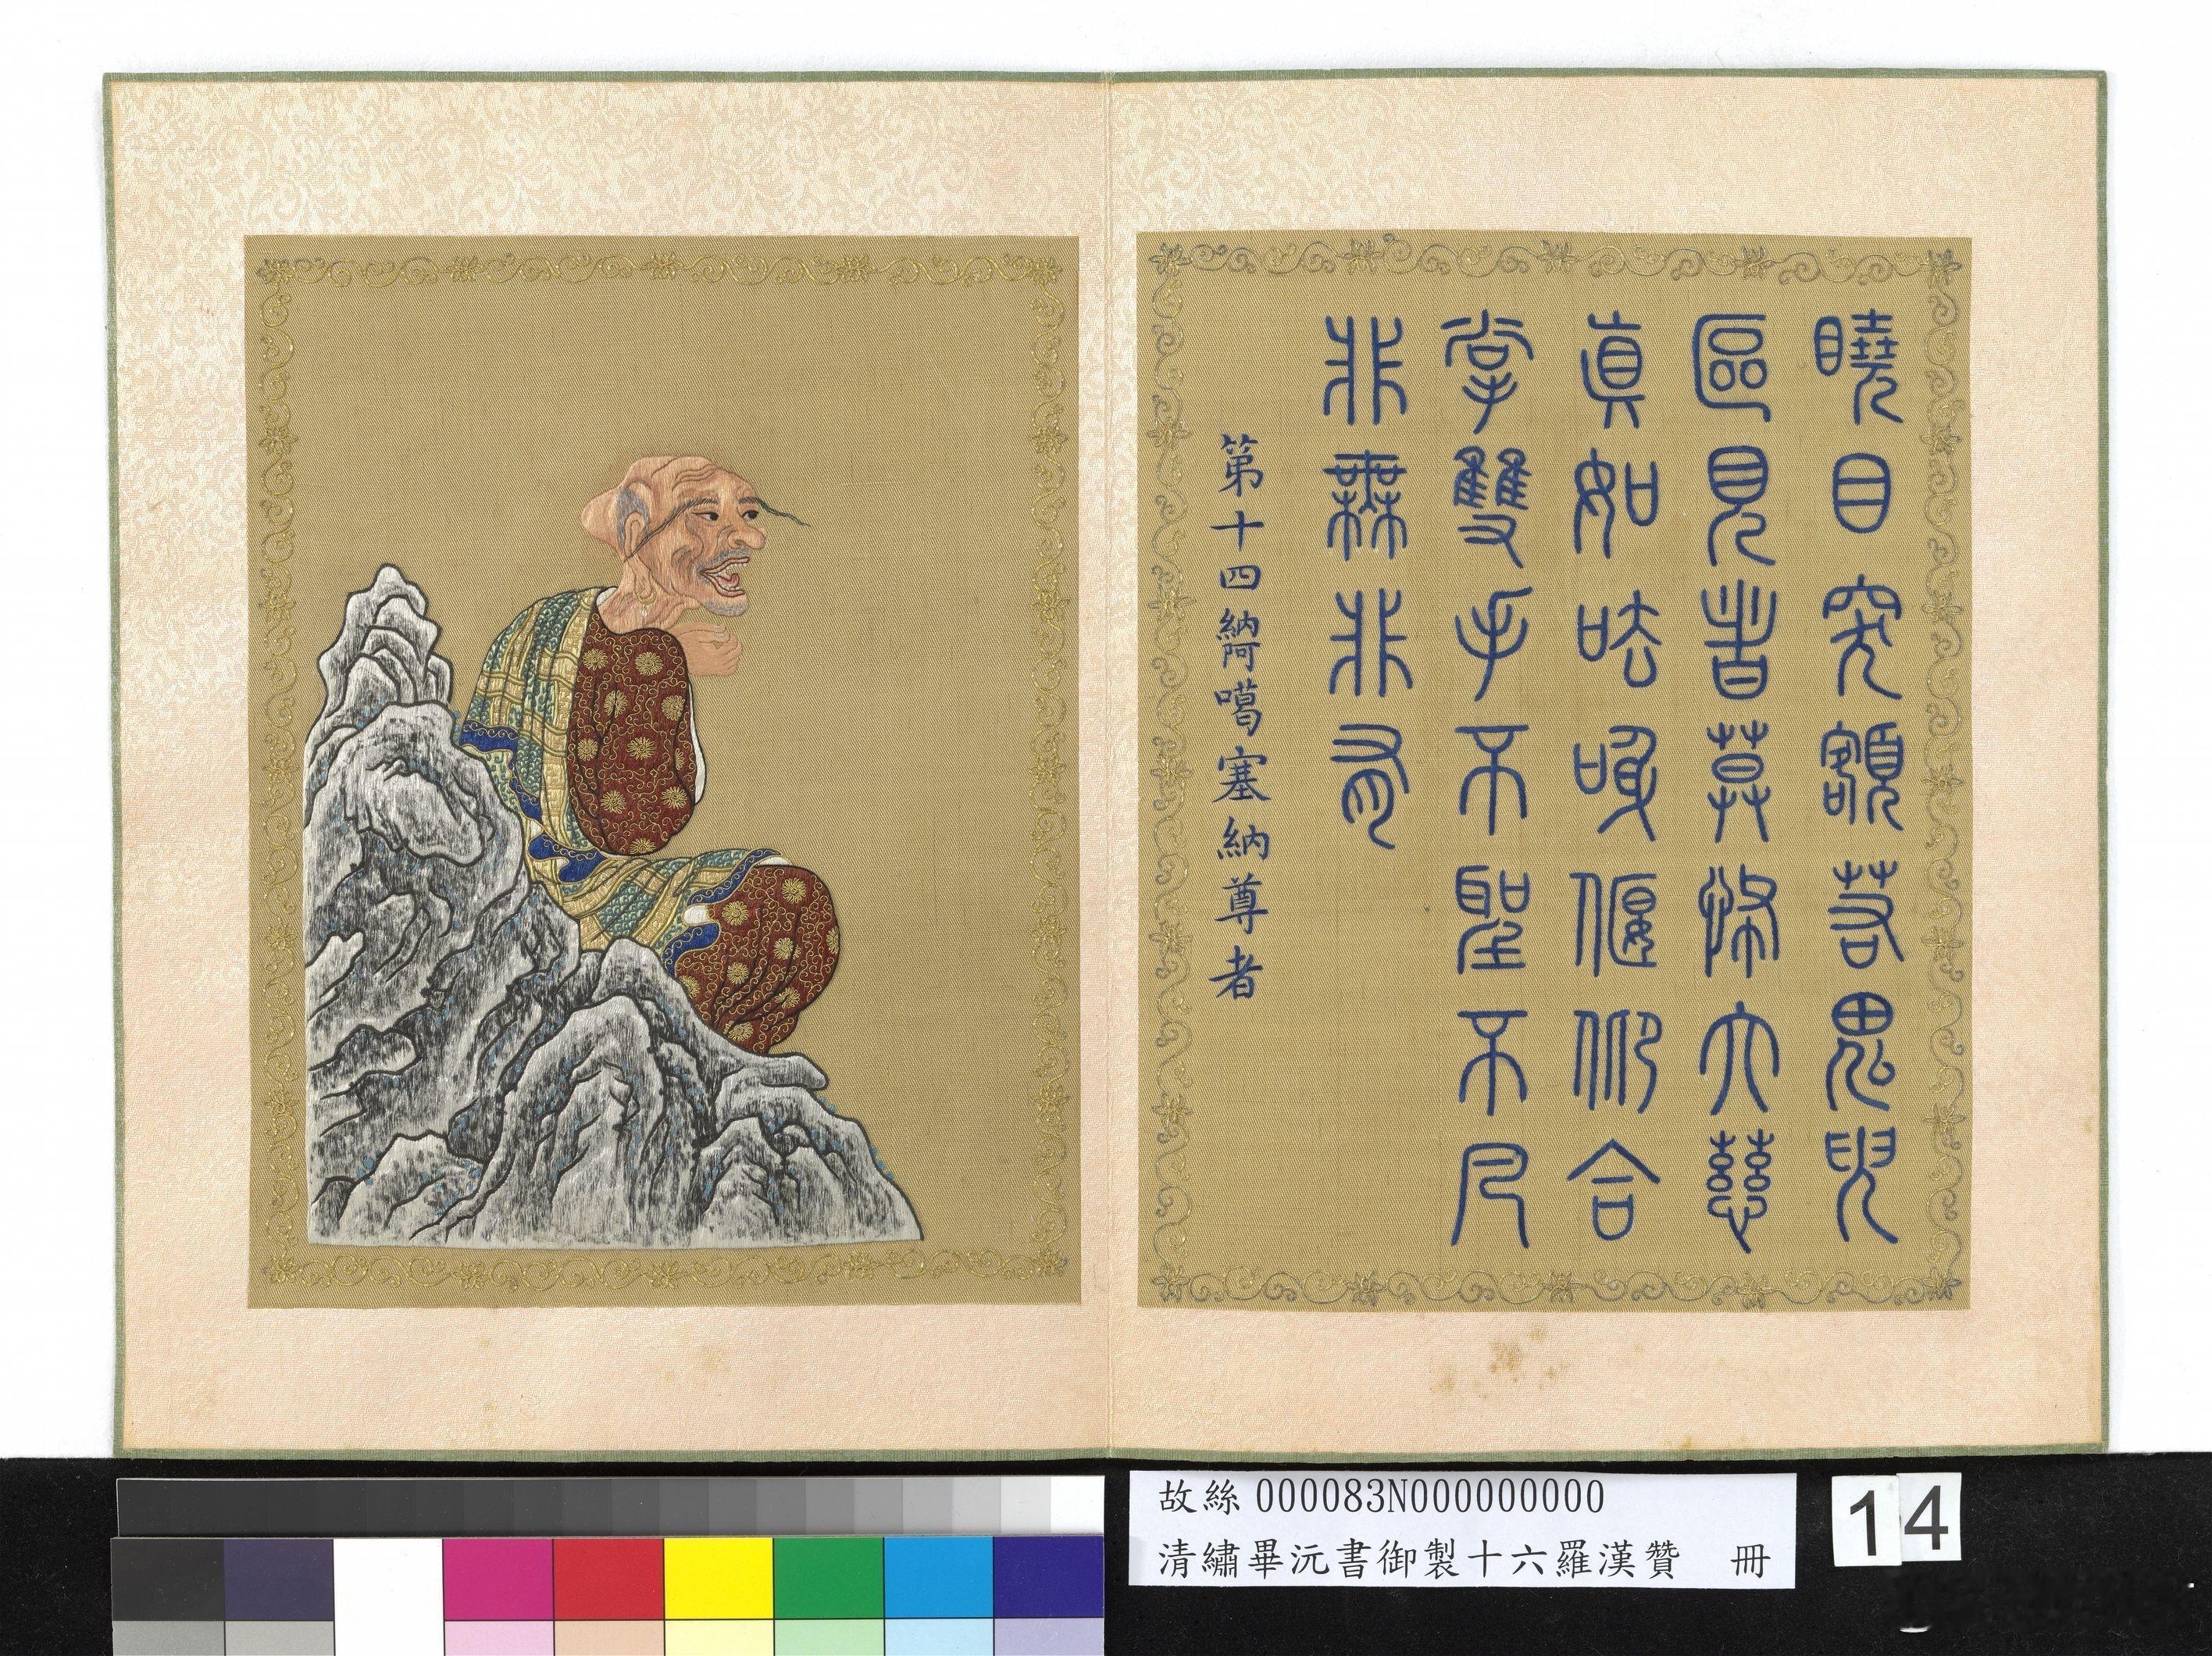 䁱目突額若鬼臾
區見者莫怵大慈
真如呿偃仰合
掌雙手不聖不凡
非無非有
第十四納阿噶塞納尊者
故絲000083N000000000
清繡畢沅書御製十六羅漢贊 冊
14